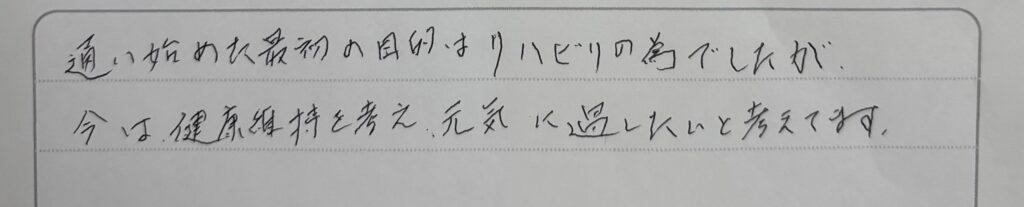 通い始めた最初の目的はリハビリの為でしたが、
今は、健康維持を考え、元気に過したいと考えてます。